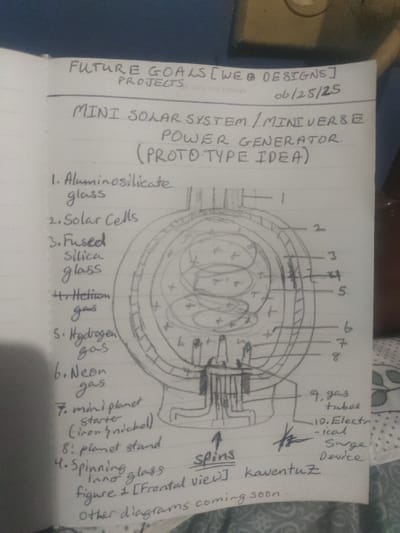 FUTURE GOALS [WEB DESIGNS]
PROJECTS
06/25/25
MINI SOLAR SYSTEM/MINIVERSE
POWER GENERATOR.
(PROTOTYPE IDEA)
1. Aluminosilicate
glass
2. Solar Cells
3. Fused
silica
glass
4. Helium
gas
5. Hydrogen
gas
6. Neon
gas
7. mini planet
starter
(iron & nickel)
8. planet stand
4. Spinning
inner glass
1
2
3
4
5
6
7
8
9. gas
tubes
10. Electr
-ical
Surge
Device
spins
figure 1 [Frontal view] kawentuz
Other diagrams coming soon